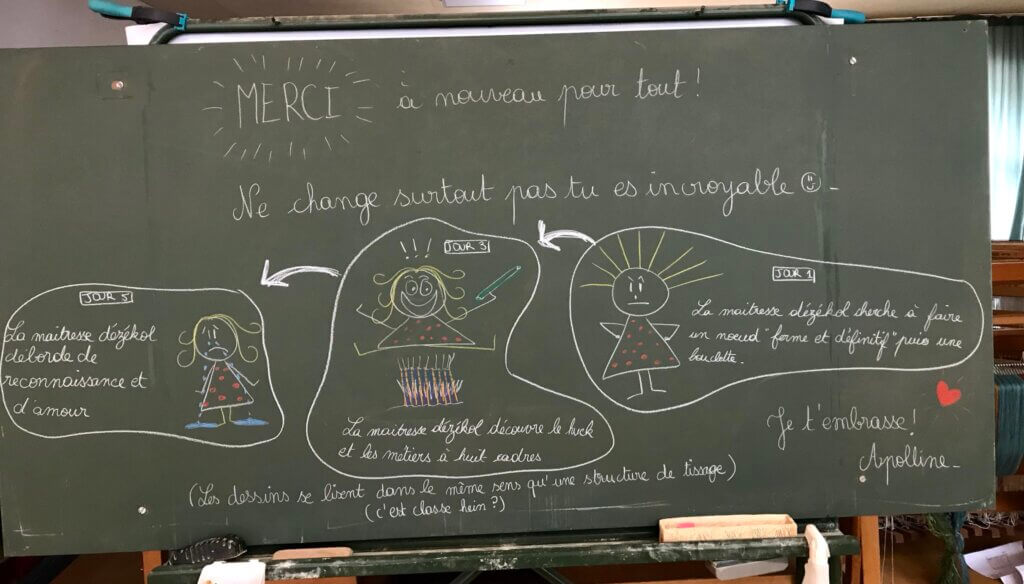 MERCI à nouveau pour tout !
Ne change surtout pas tu es incroyable 😊 -
JOUR 1
La maitresse dézékol cherche à faire
un noeud "ferme et définitif" puis une
bouclette.
! ! !
JOUR 3
La maitresse dézékol découvre le huck
et les métiers à huit cadres
JOUR 5
La maitresse dézékol
déborde de
reconnaissance et
d'amour
Je t'embrasse !
Apolline -
(Les dessins se lisent dans le même sens qu'une structure de tissage)
(c'est classe hein ?)